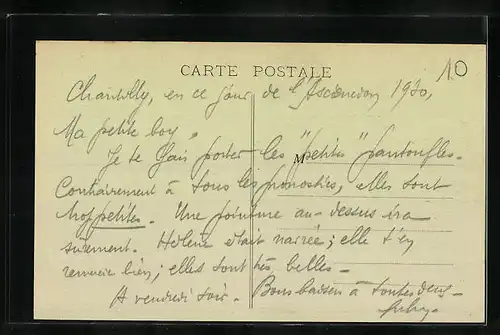 CARTE POSTALE
10
Chantilly, en ce jour de l'Ascension 1930,
Ma petite boy,
Je te fais porter les "petites" pantoufles.
M
Contrairement à tous les pronostics, elles sont
trop petites. Une pointure au-dessus ira
sûrement. Hélène était navrée; elle t'en
remercie bien; elles sont très belles.
A vendredi soir. Bons baisers à toutes deux.